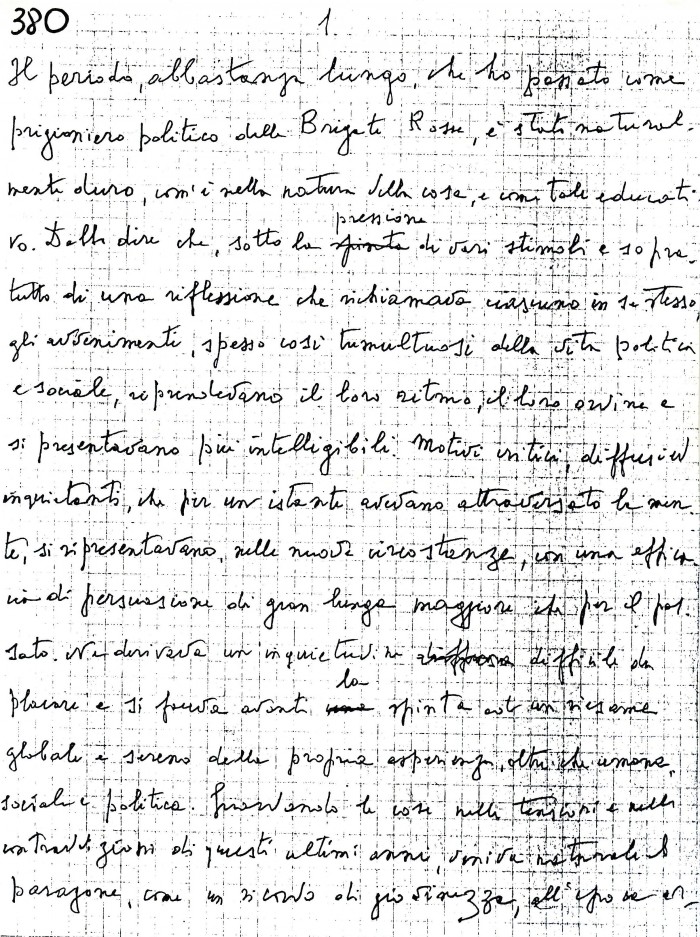 380
1.
Il periodo, abbastanza lungo, che ho passato come
prigioniero politico delle Brigate Rosse, è stato natural-
mente duro, com'è nella natura delle cose, e come tale educati
vo. Debbo dire che, sotto la spinta pressione di vari stimoli e sopra-
tutto di una riflessione che richiamava ciascuno in se stesso,
gli avvenimenti, spesso così tumultuosi della vita politica
e sociale, riprendevano il loro ritmo, il loro ordine e
si presentavano più intelligibili. Motivi critici, diffusi ed
inquietanti, che per un istante avevano attraversato la men
te, si ripresentavano, nelle nuove circostanze, con una effica
cia di persuasione di gran lunga maggiore che per il pas-
sato. Ne derivava un'inquietudine diffusa difficile da
placare e si faceva avanti una la spinta ad un riesame
globale e sereno della propria esperienza, oltre che umana,
sociale e politica. Guardando le cose nelle tensioni e nelle
contraddizioni di questi ultimi anni, veniva naturale il
paragone, come un ricordo di giovinezza, all'epoca